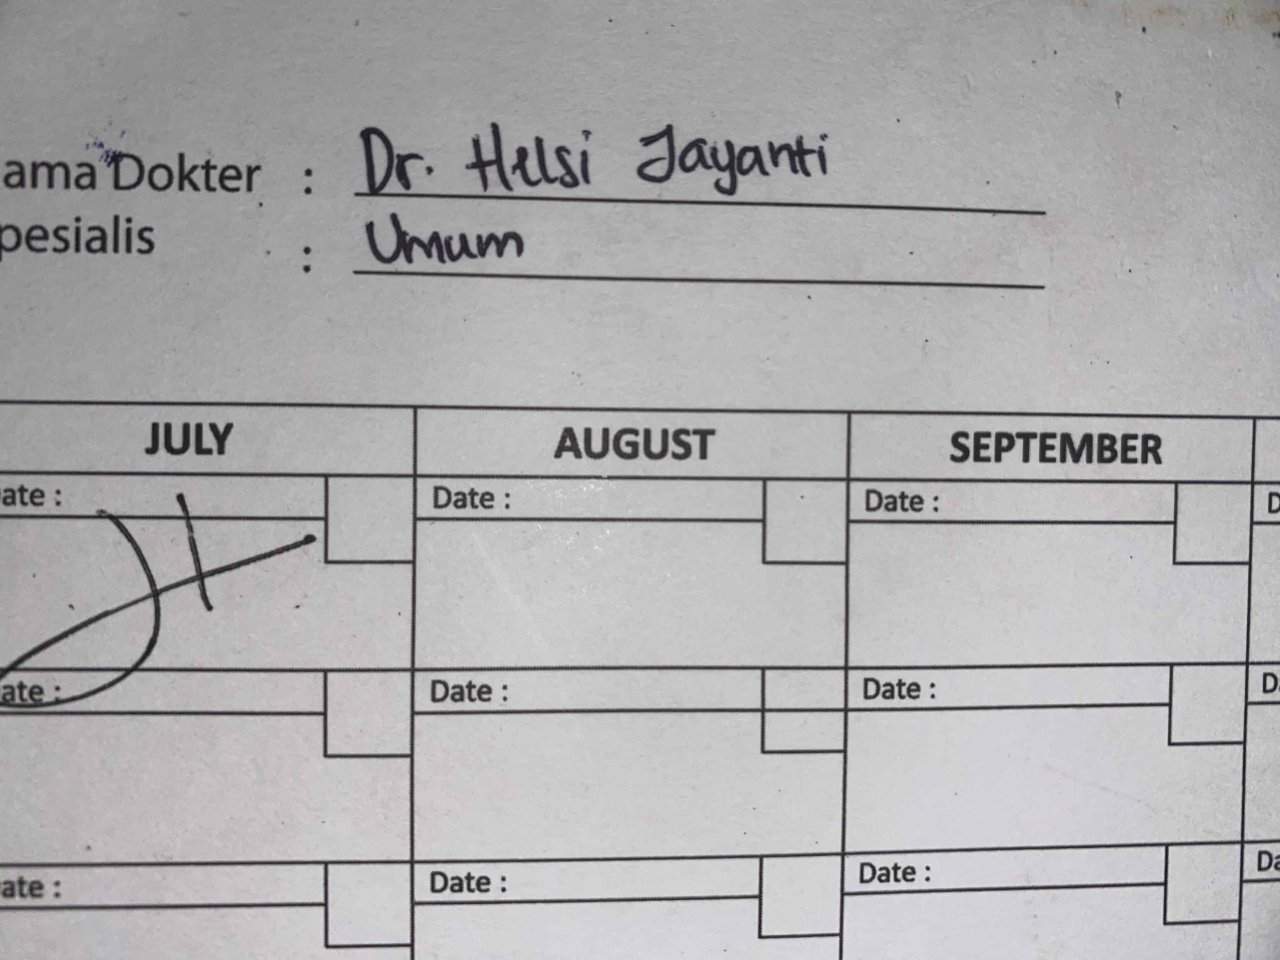 ama Dokter : Dr. Helsi Jayanti
pesialis : Umum
JULY AUGUST SEPTEMBER
ate : Date : Date : D
ate : Date : Date : D
ate : Date : Date : Da